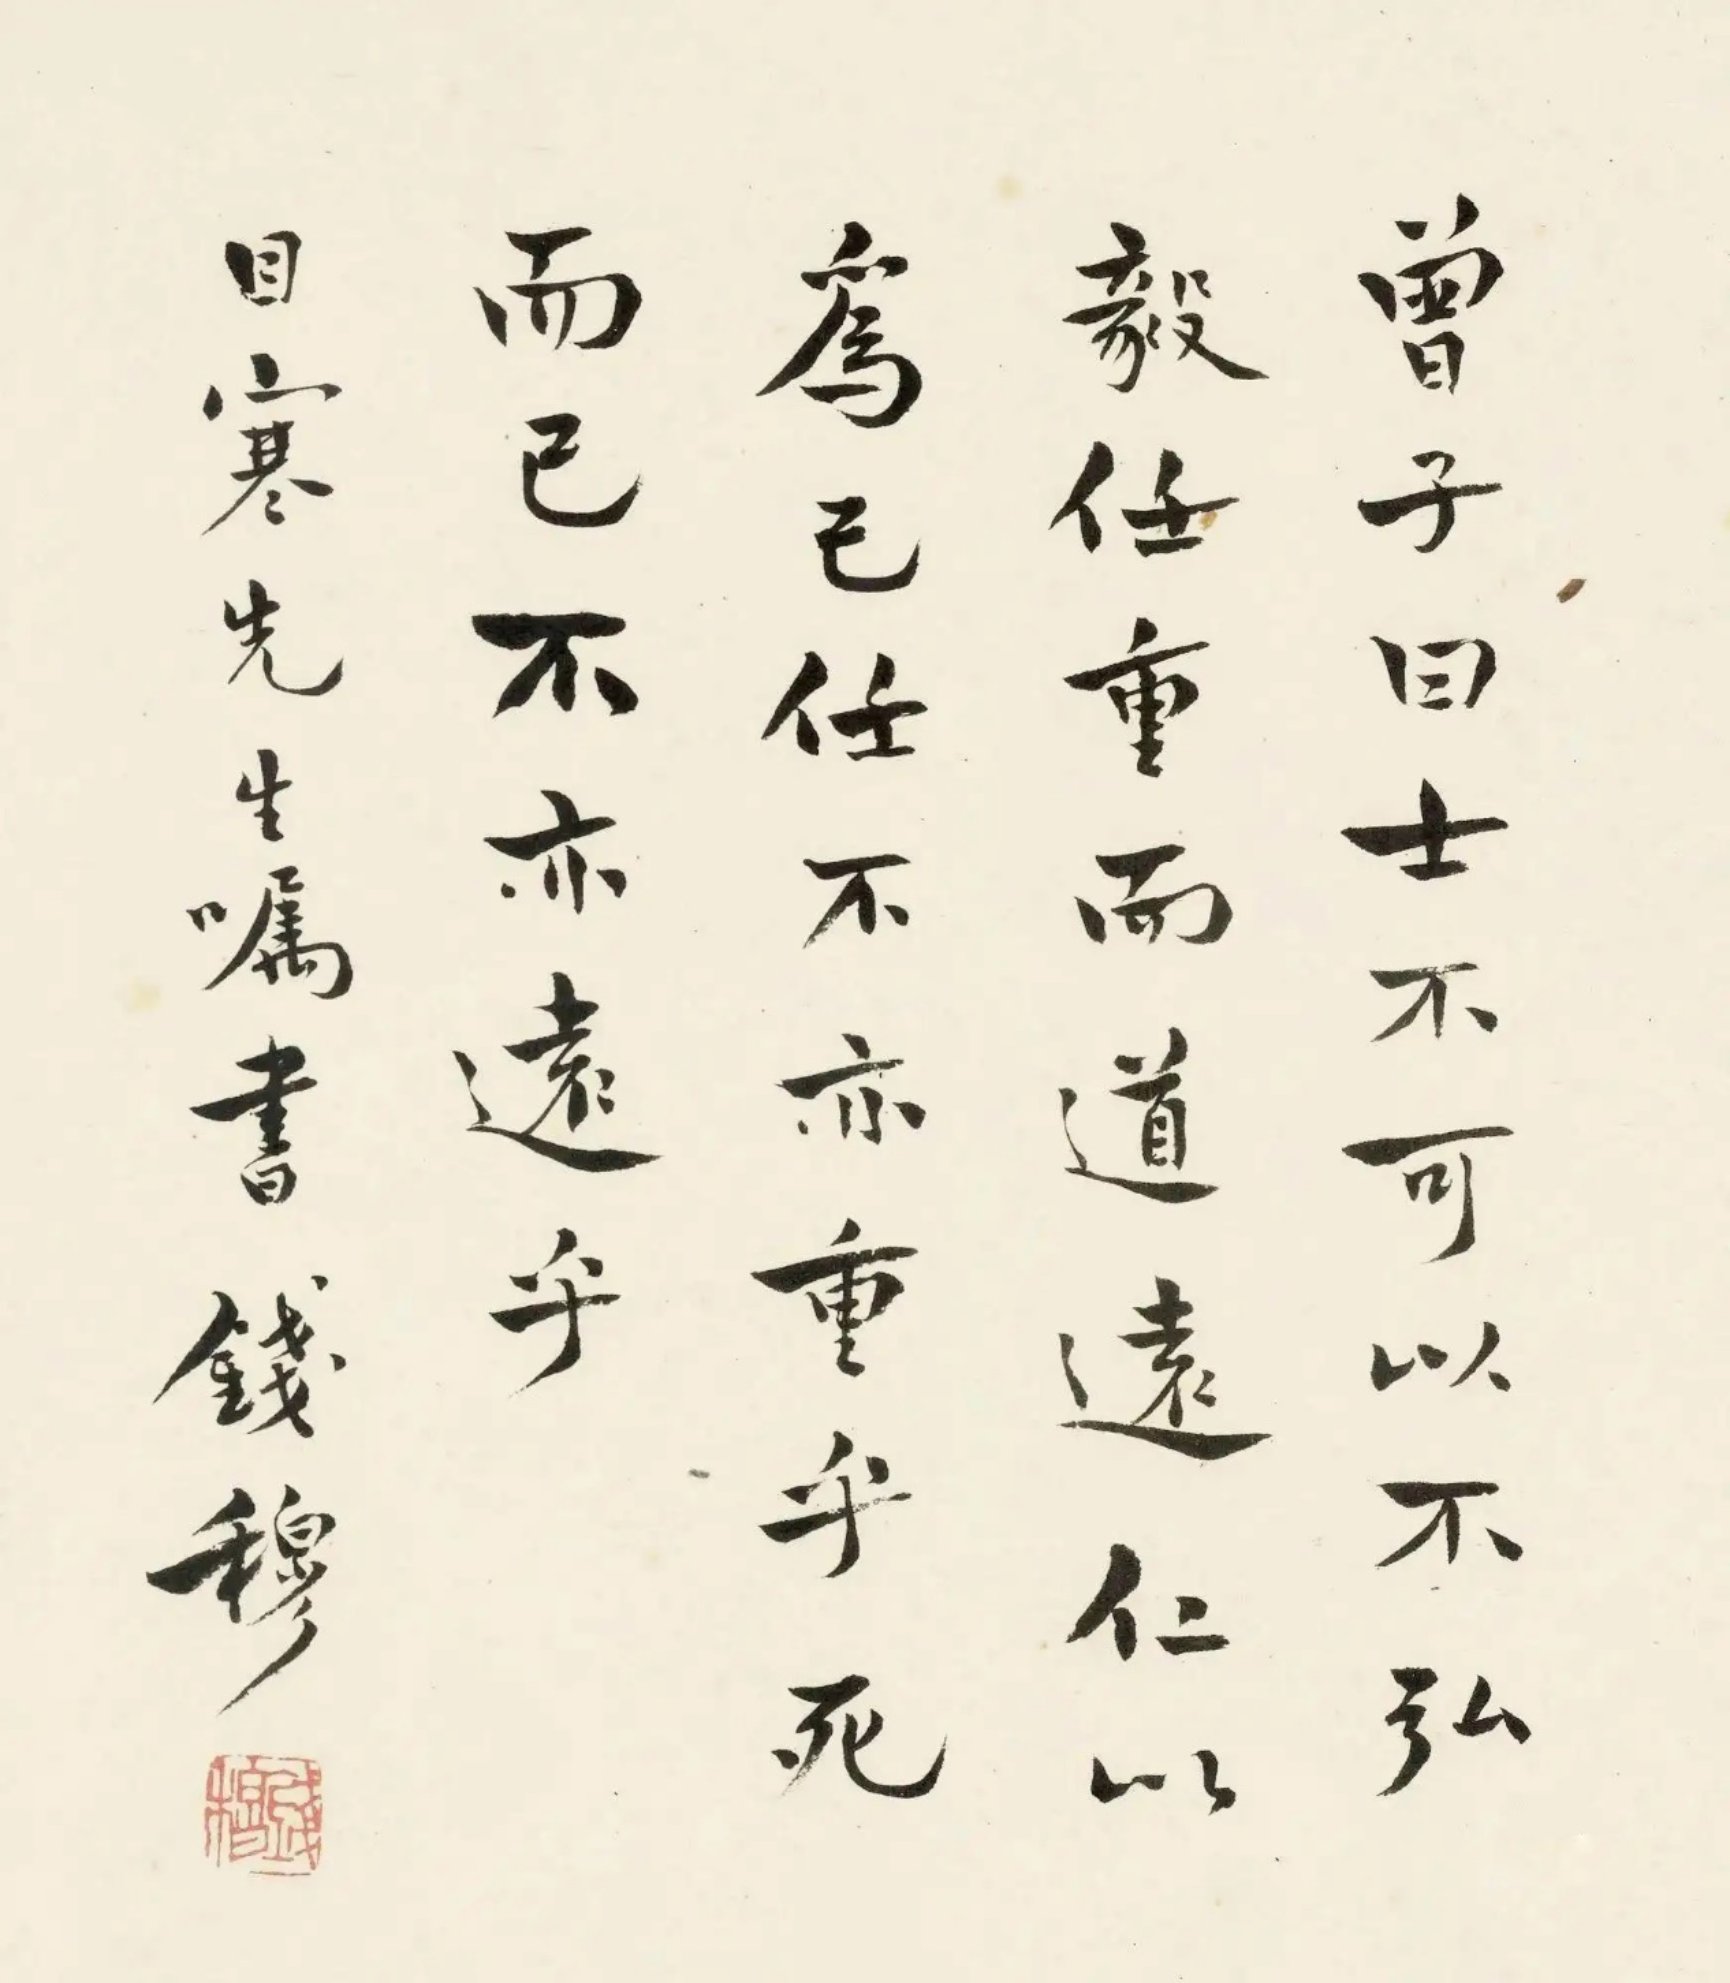 曾子曰士不可以不弘
毅任重而道遠遠仁以
爲己任不亦重乎死
而已不亦遠乎
目寒先生嘱書 錢穆
錢穆